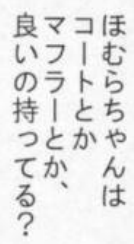 ほむらちゃんは
コートとか
マフラーとか、
良いの持ってる?